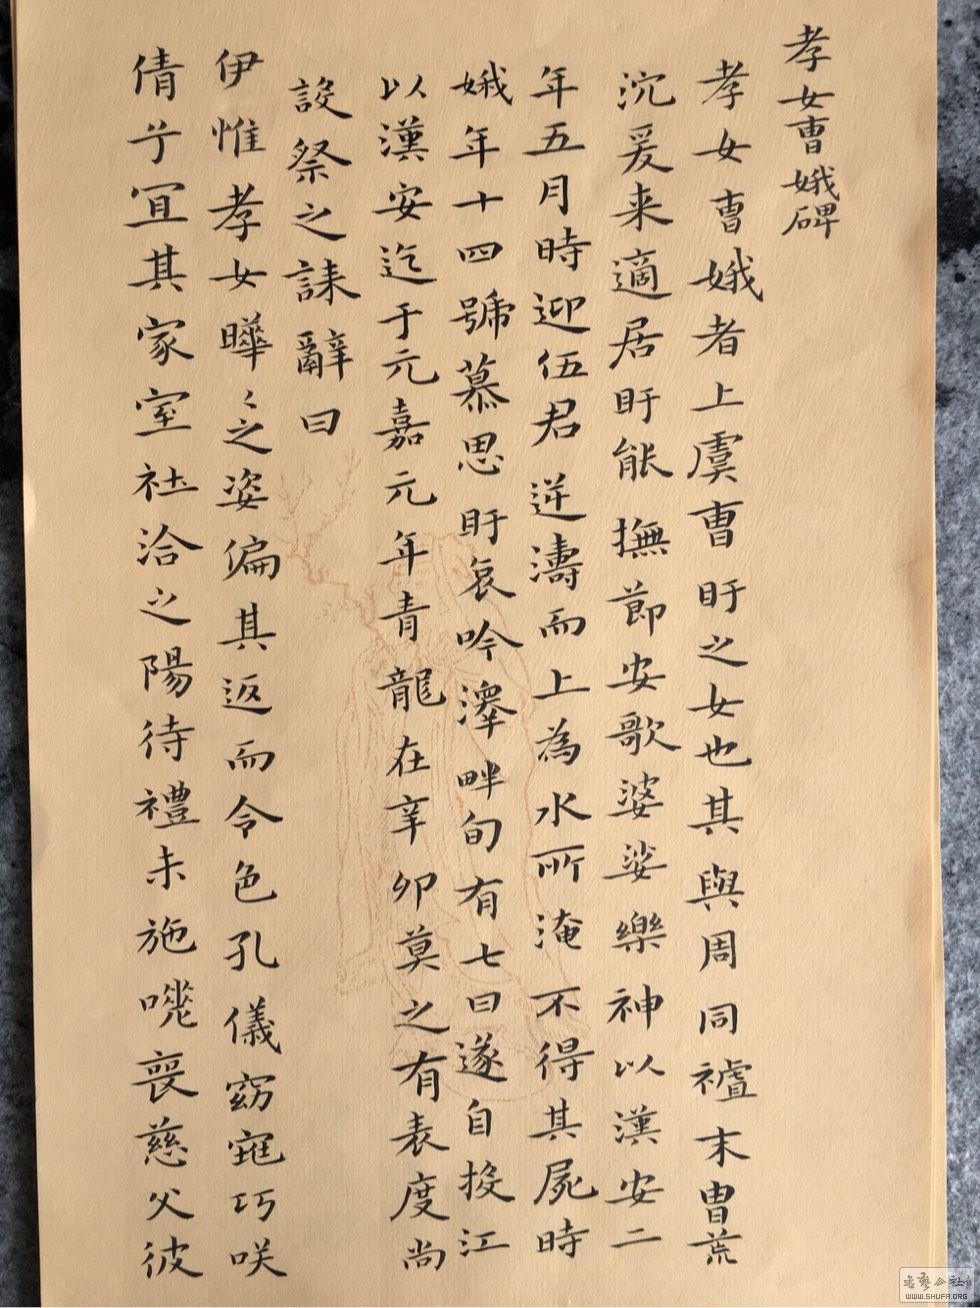 孝女曹娥碑
孝女曹娥者上虞曹盱之女也其與周同祖末胄荒
沉爰来適居盱能撫節安歌婆娑樂神以漢安二
年五月時迎伍君逆濤而上為水所淹不得其屍時
娥年十四號慕思盱哀吟澤畔旬有七日遂自投江
以漢安迄于元嘉元年青龍在辛卯莫之有表度尚
設祭之誄辭曰
伊惟孝女曄〻之姿偏其返而令色孔儀窈窕巧咲
倩兮宜其家室在洽之陽待禮未施嗟喪慈父彼
書藝公社
WWW.SHUFA.ORG